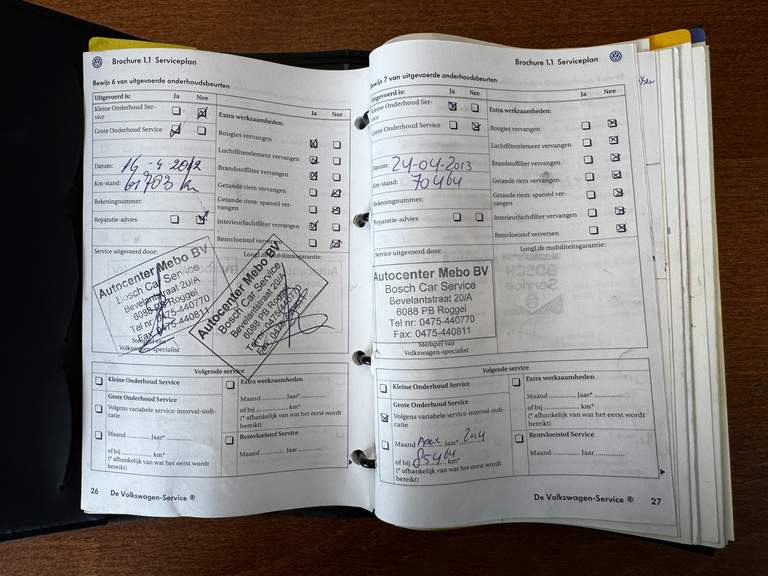 Brochure 1.1 Serviceplan
Bewijs 6 van uitgevoerde onderhoudsbeurten
Uitgevoerd is:
Ja
Nee
Kleine Onderhoud Ser-
vice
Grote Onderhoud Service
Datum: 16-4 2012
Km-stand: 61703 km
Rekeningnummer:
Reparatie-advies
Extra werkzaamheden:
Ja
Nee
Bougies vervangen
Luchtfilterelement vervangen
Brandstoffilter vervangen
Getande riem vervangen
Getande riem: spanrol ver-
vangen
Interieurluchtfilter vervangen
Remsloeistof verversen
Service uitgevoerd door:
LongLife mobiliteitsgarantie:
Autocenter Mebo BV
Bosch Car Service
Bevelantstraat 20/A
6088 PB Roggel
Tel nr: 0475-440770
Fax: 0475-440811
Stempel van
Volkswagen-specialist
Autocenter Mebo BV
Bosch Car Service
Bevelantstraat 20/A
6088 PB Roggel
Volgende service
Kleine Onderhoud Service
Grote Onderhoud Service
Volgens variabele service-interval-indi-
catie
Maand Jaar*
of bij km*
(* afhankelijk van wat het eerst wordt
bereikt)
Extra werkzaamheden
Maand Jaar*
of bij km*
(* afhankelijk van wat het eerst wordt
bereikt)
Remvloeistof Service
Maand Jaar
26
De Volkswagen-Service ®
Brochure 1.1 Serviceplan
Bewijs 7 van uitgevoerde onderhoudsbeurten
Uitgevoerd is:
Ja
Nee
Kleine Onderhoud Ser-
vice
Grote Onderhoud Service
Datum: 24-04-2013
Km-stand: 70464
Rekeningnummer:
Reparatie-advies
Extra werkzaamheden:
Ja
Nee
Bougies vervangen
Luchtfilterelement vervangen
Brandstoffilter vervangen
Getande riem vervangen
Getande riem: spanrol ver-
vangen
Interieurluchtfilter vervangen
Remsloeistof verversen
Service uitgevoerd door:
LongLife mobiliteitsgarantie:
Autocenter Mebo BV
Bosch Car Service
Bevelantstraat 20/A
6088 PB Roggel
Tel nr: 0475-440770
Fax: 0475-440811
Stempel van
Volkswagen-specialist
Volgende service
Kleine Onderhoud Service
Grote Onderhoud Service
Volgens variabele service-interval-indi-
catie
Maand Jaar* 2014
of bij 85464 km*
(* afhankelijk van wat het eerst wordt
bereikt)
Extra werkzaamheden
Maand Jaar*
of bij km*
(* afhankelijk van wat het eerst wordt
bereikt)
Remvloeistof Service
Maand Jaar
De Volkswagen-Service ®
27